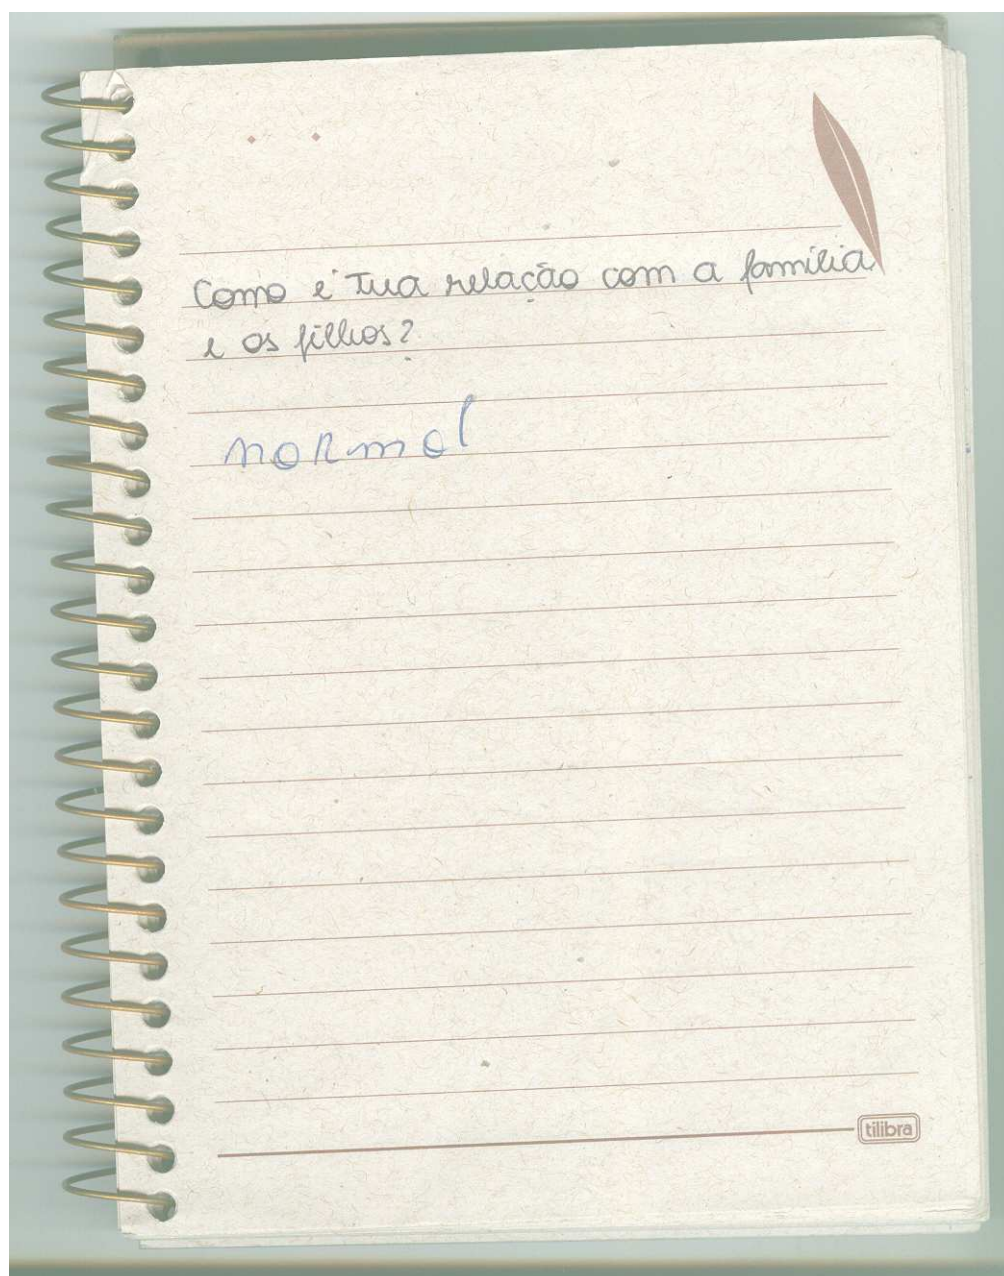 Como é tua relação com a família
e os filhos?
normal
tilibra